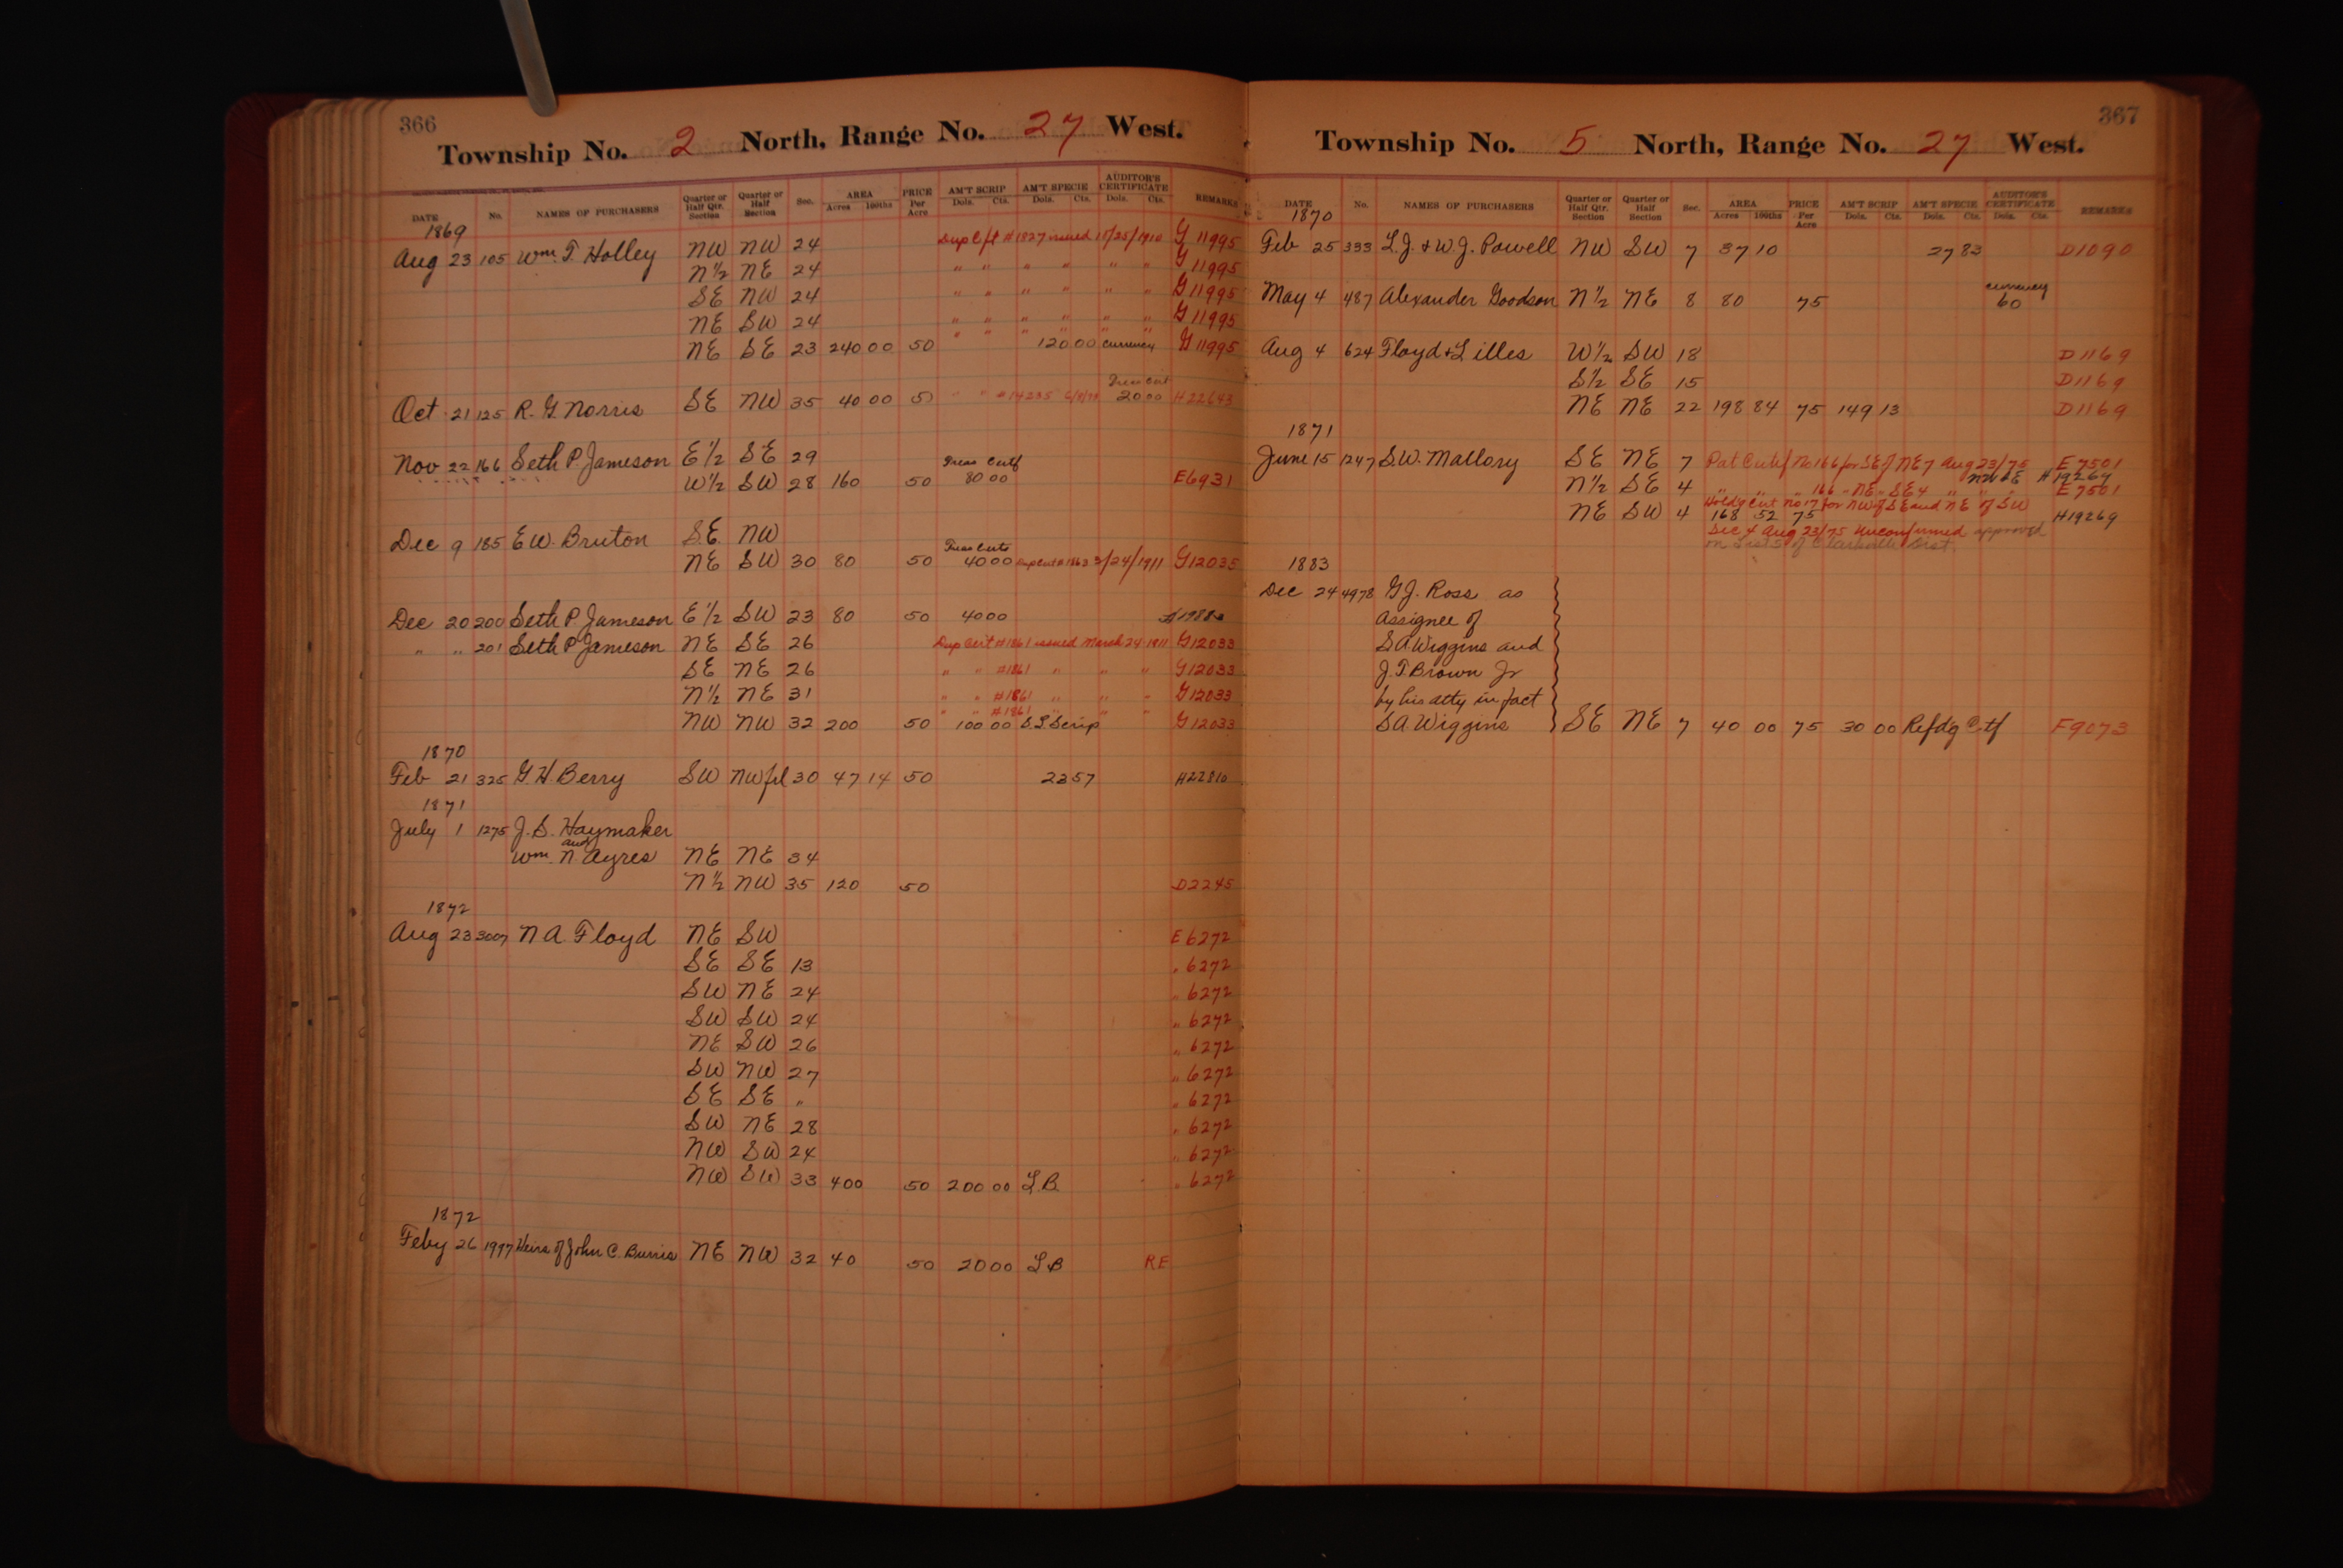 366
Township No. 2 North, Range No. 27 West.
DATE No. NAMES OF PURCHASERS Quarter or Half Qtr. Section Quarter or Half Section Sec. AREA Acres 100ths PRICE Per Acre AM'T SCRIP Dols. Cts. AM'T SPECIE Dols. Cts. AUDITOR'S CERTIFICATE Dols. Cts. REMARKS
1869
Aug 23 105 Wm. T. Holley NW NW 24 Dup Cft #1827 issued 10/25/1910 G 11995
N½ NE 24 " " " " " " G 11995
SE NW 24 " " " " " " G 11995
NE SW 24 " " " " " " G 11995
NE SE 23 240 00 50 " " " " " " 120 00 currency G 11995
Oct 21 125 R. G. Norris SE NW 35 40 00 50 " " #14235 20 00 H22643
Nov 22 166 Seth P. Jameson E½ SE 29
W½ SW 28 160 50 Treas Certf 80 00 E6931
Dec 9 185 E W. Bruton SE NW
NE SW 30 80 50 Treas Certs 40 00 Dup Cert #1863 3/24/1911 G12035
Dec 20 200 Seth P. Jameson E½ SW 23 80 50 40 00
" " 201 Seth P Jameson NE SE 26 Dup Cert #1861 issued March 24 1911 G12033
SE NE 26 " " #1861 " " " G12033
N½ NE 31 " " #1861 " " " G12033
NW NW 32 200 50 " " #1861 " " " 100 00 S.L. Scrip G12033
1870
Feb 21 325 G. H. Berry SW NW frl 30 47 14 50 23 57 H22810
1871
July 1 1275 J. S. Haymaker
and
Wm. N. Ayres NE NE 34
N½ NW 35 120 50 D2245
1872
Aug 23 3007 N A. Floyd NE SW E 6272
SE SE 13 " 6272
SW NE 24 " 6272
SW SW 24 " 6272
NE SW 26 " 6272
SW NW 27 " 6272
SE SE " " 6272
SW NE 28 " 6272
NW SW 24 " 6272
NW SW 33 400 50 200 00 L.B. " 6272
1872
Feby 26 1997 Heirs of John C. Burris NE NW 32 40 50 20 00 L B RE
367
Township No. 5 North, Range No. 27 West.
DATE No. NAMES OF PURCHASERS Quarter or Half Qtr. Section Quarter or Half Section Sec. AREA Acres 100ths PRICE Per Acre AM'T SCRIP Dols. Cts. AM'T SPECIE Dols. Cts. AUDITOR'S CERTIFICATE Dols. Cts. REMARKS
1870
Feb 25 333 L. J. & W. J. Powell NW SW 7 37 10 27 83 D1090
May 4 487 Alexander Goodson N½ NE 8 80 75 currency 60
Aug 4 624 Floyd & Lilles W½ SW 18 D1169
S½ SE 15 D1169
NE NE 22 198 84 75 149 13 D1169
1871
June 15 1247 S. W. Mallory SE NE 7 Pat Certf No 166 for SE of NE 7 Aug 23/75 E 7501
NW SE H19267
N½ SE 4 " " " 166 " NE " SE 4 " " " E 7501
Holdg Cert No 17 for NW of SE and NE of SW
NE SW 4 168 52 75 H19269
Sec 4 Aug 23/75 Unconfirmed approved
on List 5 of Clarksville Dist.
1883
Dec 24 4978 G. J. Ross as
Assignee of
S A Wiggins and
J. T. Brown Jr
by his atty in fact
S A. Wiggins SE NE 7 40 00 75 30 00 Refdg Ctf F9073